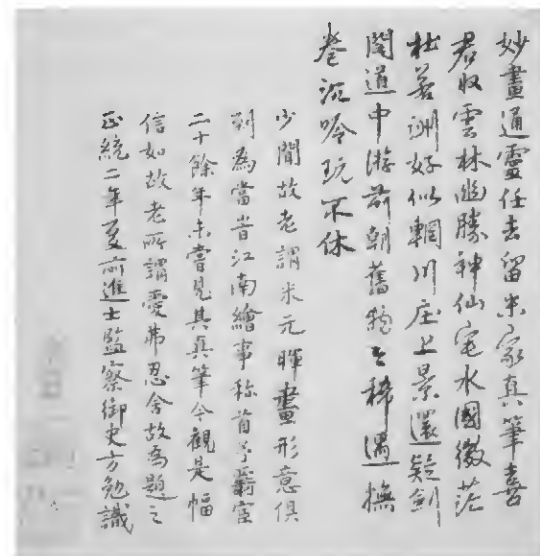 妙畫通靈任去留米家真筆喜
君收雲林幽勝神仙宅水國微茫
杜若洲好似輞川庄上景還疑劍
閣道中游前朝舊物之稀遇撫
卷沉吟玩不休
少聞故老謂米元暉畫形意俱
到為當昔江南繪事称首予爵宦
二十餘年未嘗見其真筆今觀是幅
信如故老所謂愛弗忍舍故為題之
正統二年夏前進士監察御史方勉識